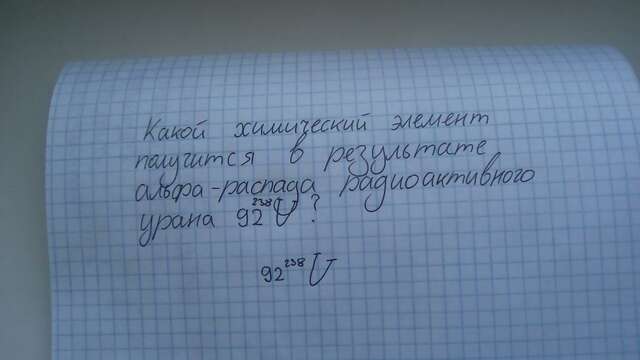 Какой химический элемент
получится в результате
альфа-распада радиоактивного
урана 92 ²³⁸U ?
92 ²³⁸U